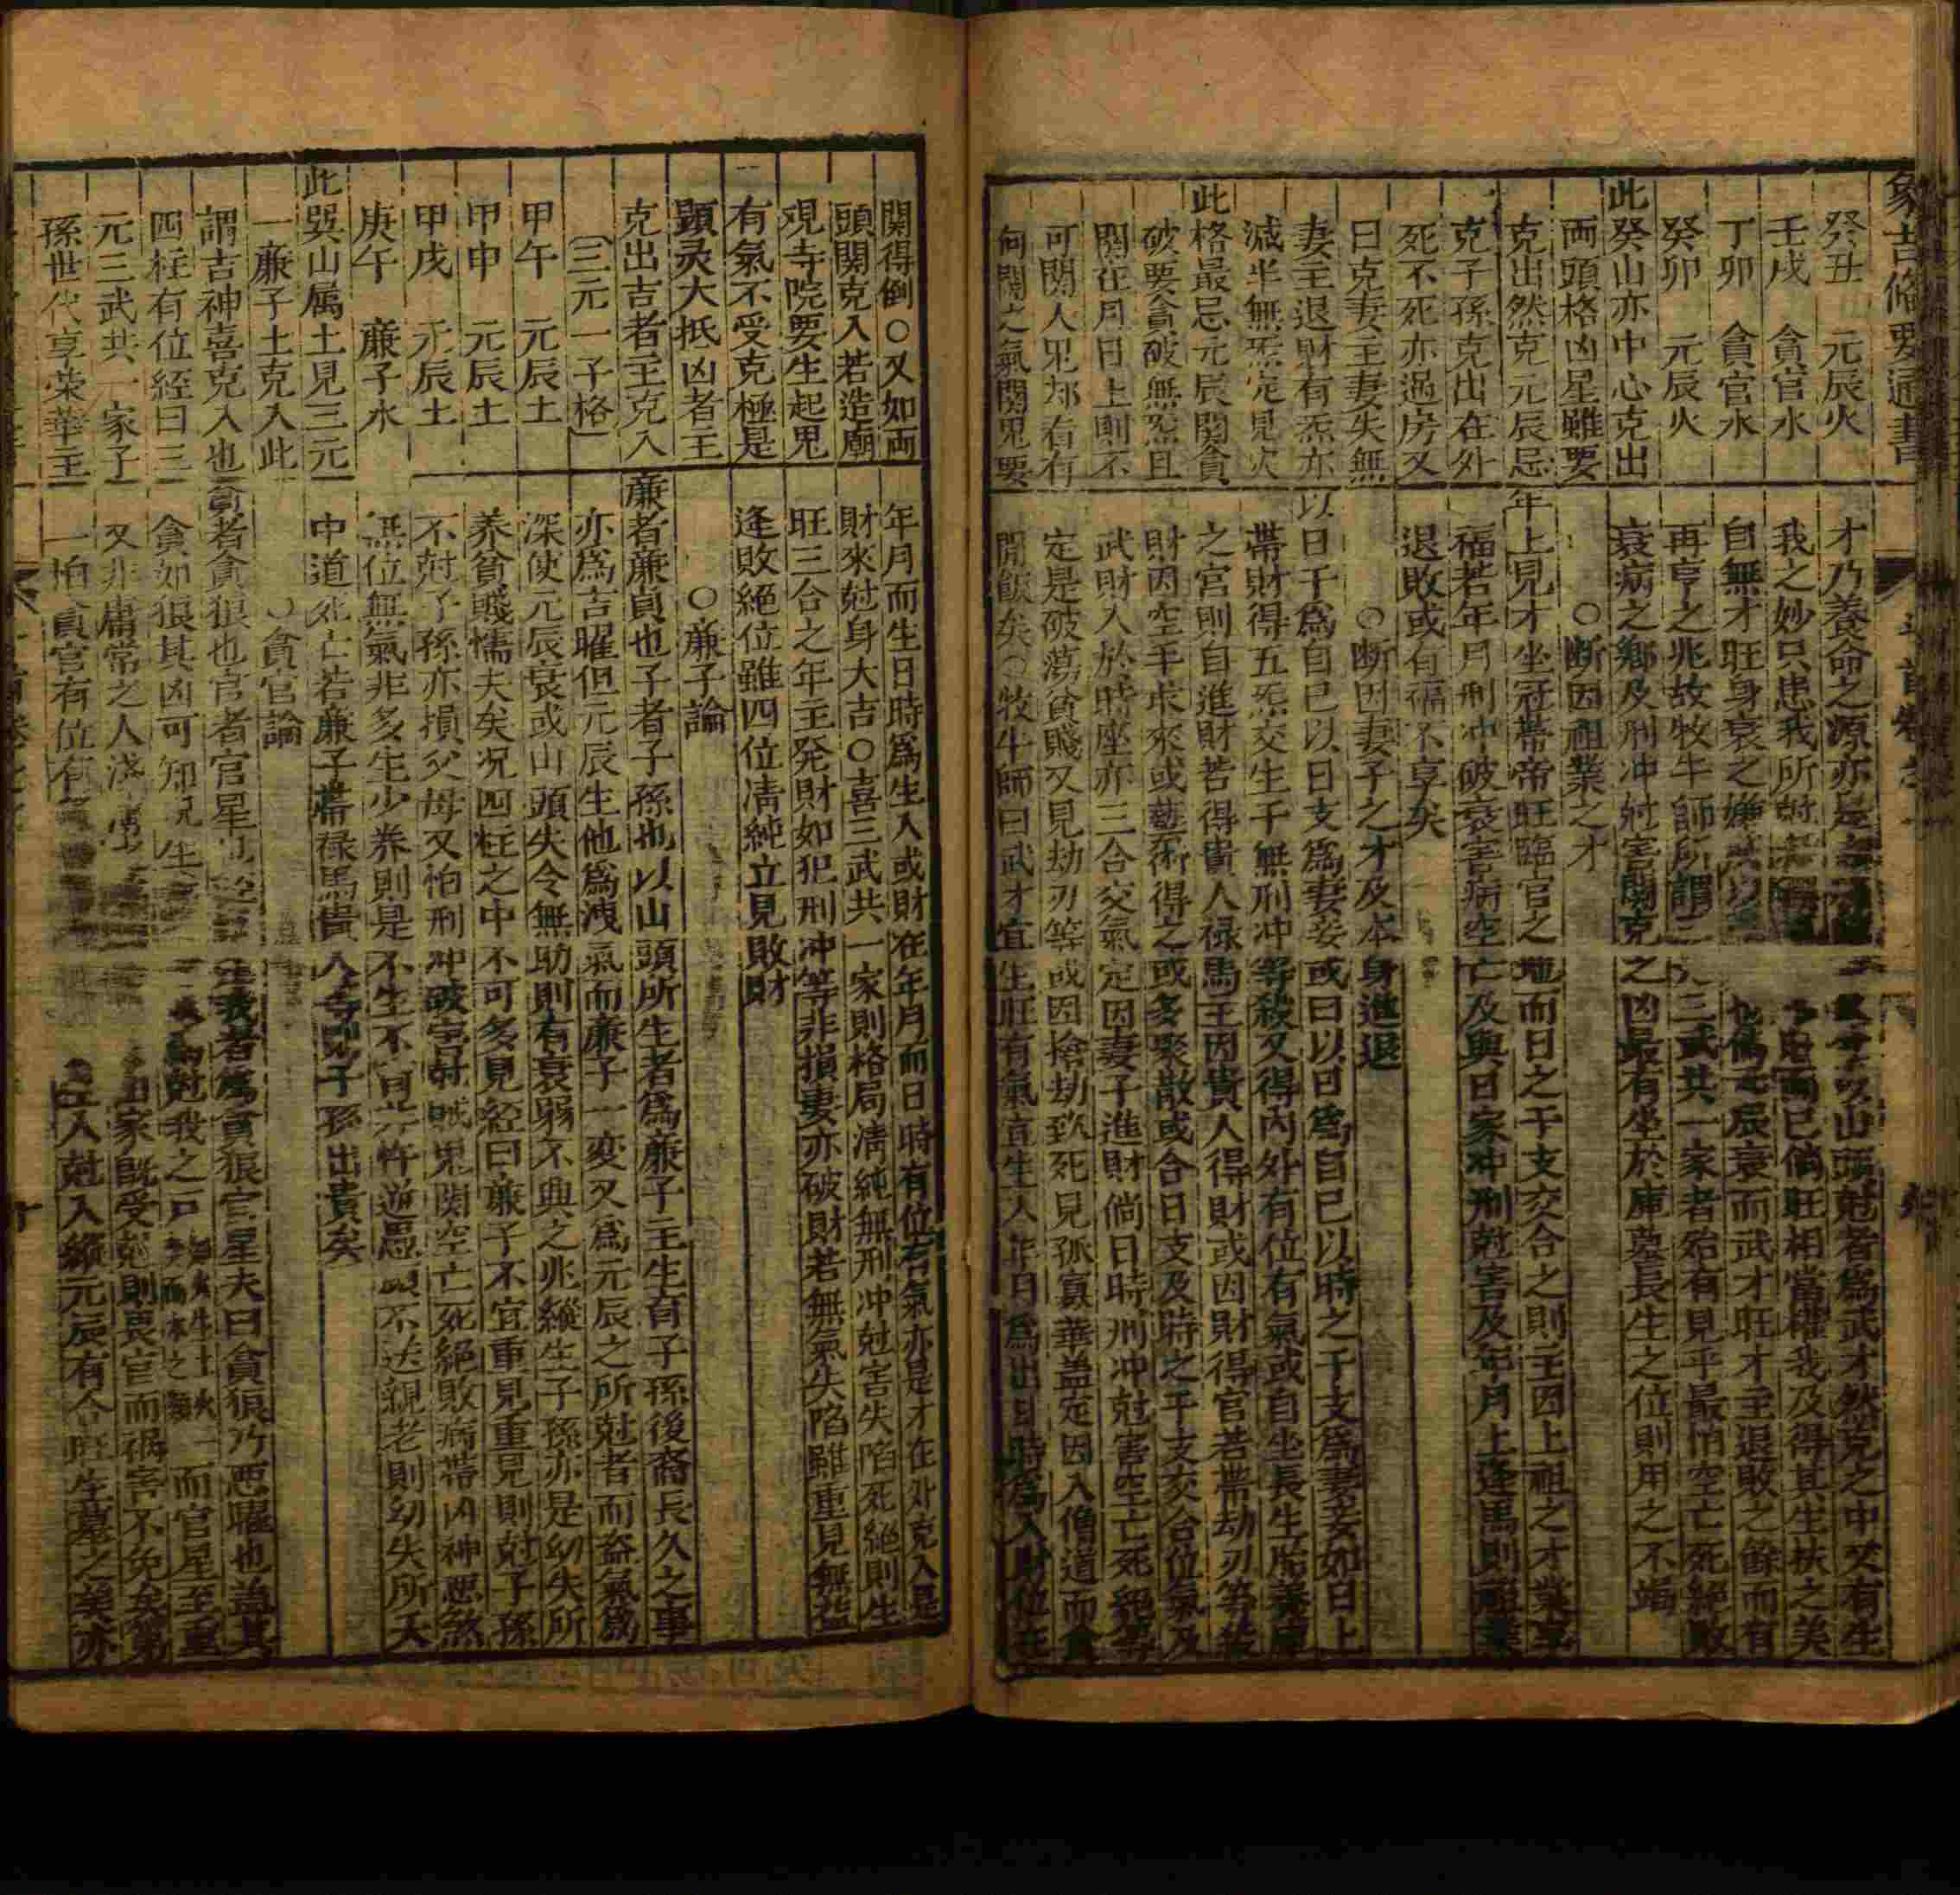 象吉備要通書
癸丑　元辰火
壬戌　貪官水
丁卯　貪官水
癸卯　元辰火
此癸山亦中心克出
両頭格凶星雖要
克出然克元辰忌
克子孫克出在外
死不死亦過房又
曰克妻主妻失無
妻主退財有炁亦
減半無炁定見欠
此格最忌元辰関貪
破要貪破無炁且
関在月日上則不
可関人児都看有
何関之氣関児要
才乃養命之源亦是
以山頭尅者爲武才然克之中又有生
我之妙只患我所尅
旺相當權我及得其生扶之美
自無才旺身衰之嫌
元辰衰而武才旺才主退敗之餘而有
再亨之兆故牧牛師所謂三
三武共一家者殆有見乎最怕空亡死絶敗
衰病之鄉及刑冲尅害關克之凶最有坐於庫墓長生之位則用之不竭
○断因祖業之才
年上見才坐冠帯帝旺臨官之地而日之干支交合之則主因上祖之才業享
福若年月刑冲破衰害病空亡及與日家冲刑尅害及年月上逢馬則離業
退敗或有福不享矣
○断因妻子之才及本身進退
以日干爲自己以日支爲妻妾或曰以日爲自己以時之干支爲妻妾如日上
帯財得五炁交生干無刑冲等殺又得内外有位有氣或自坐長生胎養庫
之官則自進財若得貴人禄馬主因貴人得財或因財得官若帯劫刃等殺
財因空手求來或藝術得之或多聚散或合日支及時之干支交合位氣及
武財入於時座亦三合交氣定因妻子進財倘日時刑冲尅害空亡死絶等
定是破蕩貧賤又見劫刃等或因搶劫致死見孤寡華盖定因入僧道而食
閒飯矣○牧牛師曰武才宜生旺有氣宜生人年月爲出日時爲入財位在
関得倒○又如両
頭関克入若造廟
観寺院要生起児
有氣不受克極是
顕灵大抵凶者主
克出吉者主克入
〔三元一子格〕
甲午　元辰土
甲申　元辰土
甲戌　元辰土
庚午　廉子水
此巽山属土見三元
一廉子土克入此
謂吉神喜克入也
四柱有位経曰三
元三武共一家子
孫世代享荣華主
年月而生日時爲生入或財在年月而日時有位有氣亦是才在外克入是
財來尅身大吉○喜三武共一家則格局清純無刑冲尅害失陷死絶則生
旺三合之年主発財如犯刑冲等非損妻亦破財若無氣失陷雖重見無益
逢敗絶位雖四位清純立見敗財
○廉子論
廉者廉貞也子者子孫也以山頭所生者爲廉子主生育子孫後裔長久之事
亦爲吉曜但元辰生他爲洩氣而廉子一変又爲元辰之所尅者而盗氣爲
深使元辰衰或山頭失令無助則有衰弱不與之兆縱生子孫亦是幼失所
养貧賤懦夫矣况四柱之中不可多見経曰廉子不宜重見重見則尅子孫
不尅子孫亦損父母又怕刑冲破害尅賊鬼関空亡死絶敗病帯凶神悪煞
無位無氣非多生少养則是不生不育忤逆愚頑不送親老則幼失所夭
中道死亡若廉子帯禄馬貴人之子孫出貴矣
○貪官論
貪者貪狼也官者官星也
我者爲貪狼官星夫曰貪狼乃悪曜也盖其
貪如狼其凶可知况生
尅我之戸
而官星至重
又非庸常之人
家既受尅則畏官而禍害不免矣第
一怕貪官有位有氣
主入尅入縱元辰有合旺生墓之美亦